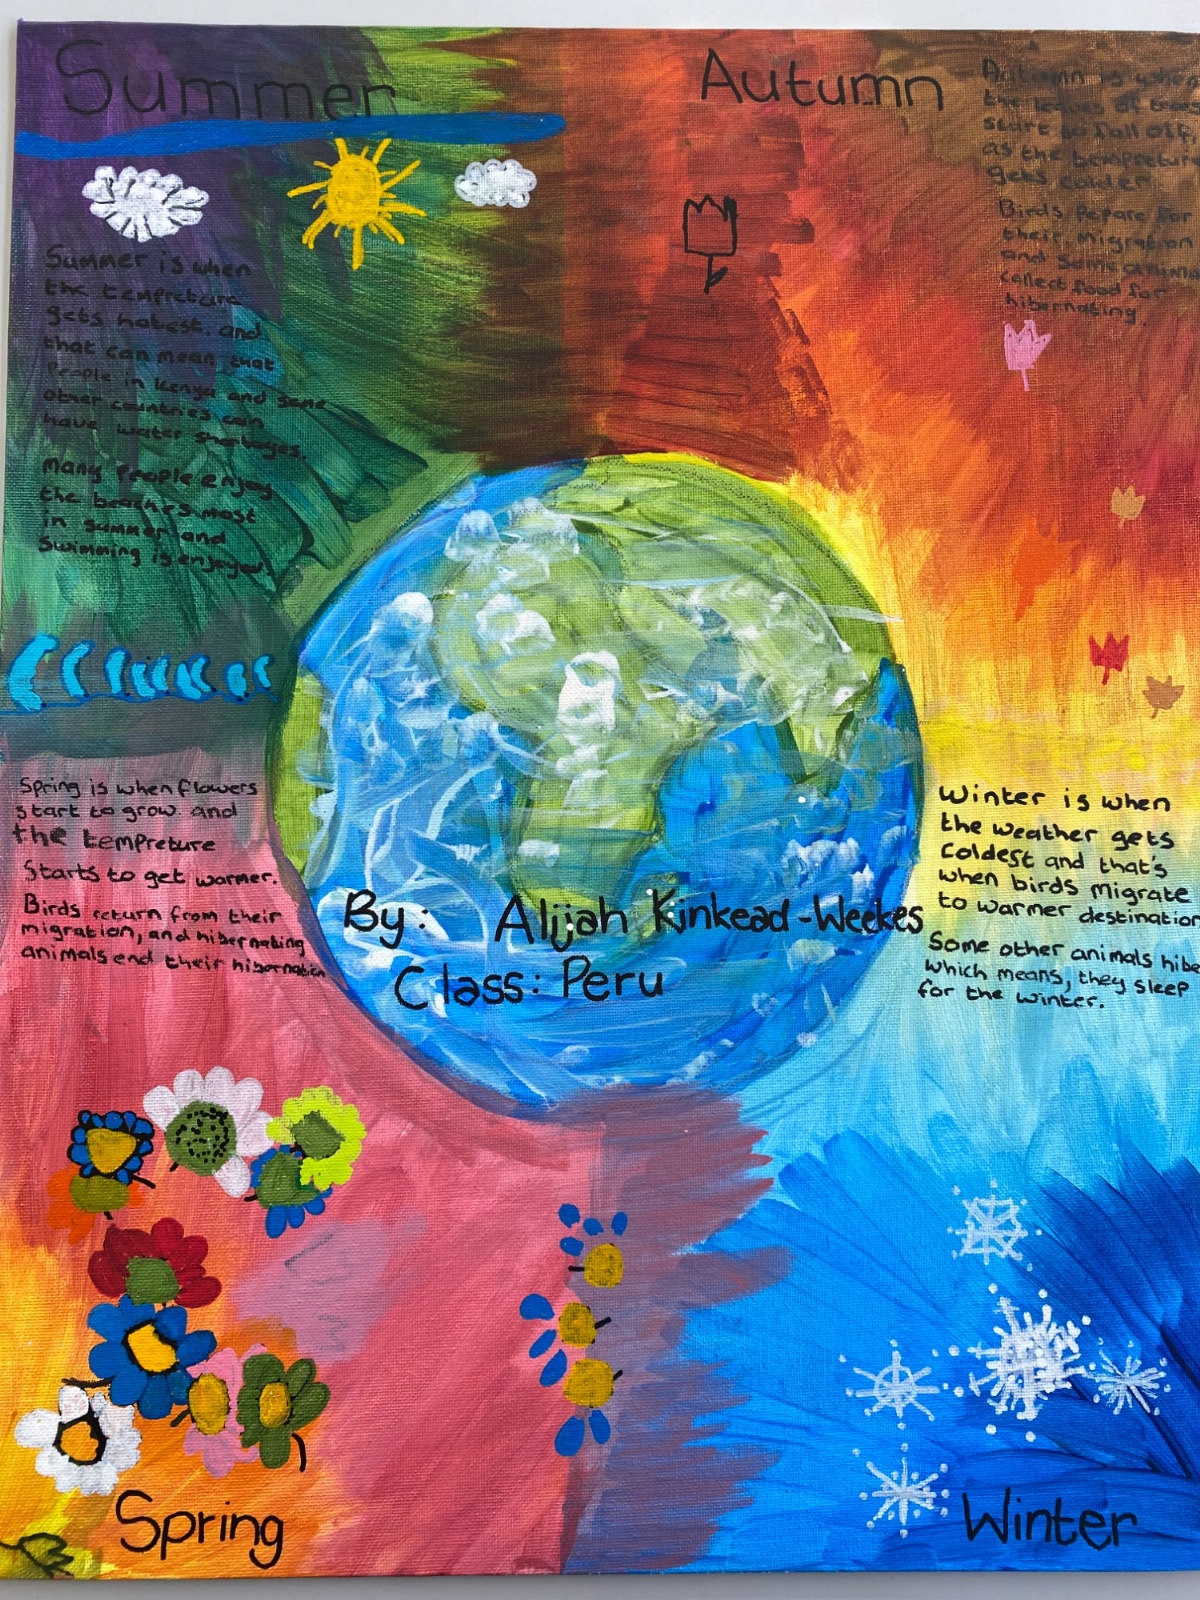 Summer
Summer is when
the tempreture
gets hotest. and
that can mean that
People in Kenya and some
other countries can
have water shortages.
many people enjoy
the beaches most
in summer and
Swimming is enjoyed.
Autumn
Autumn is when
the leaves of trees
start to fall off,
as the tempreture
gets colder.
Birds Pepare for
their migration
and some anima
collect food for
hibernating.
Spring is when flowers
start to grow. and
the tempreture
Starts to get warmer.
Birds return from their
migration, and hibernating
animals end their hibernation
Winter is when
the weather gets
Coldest and that's
when birds migrate
to warmer destination
Some other animals hibe
which means, they sleep
for the winter.
By: Alijah Kinkead-Weekes
Class: Peru
Spring
Winter